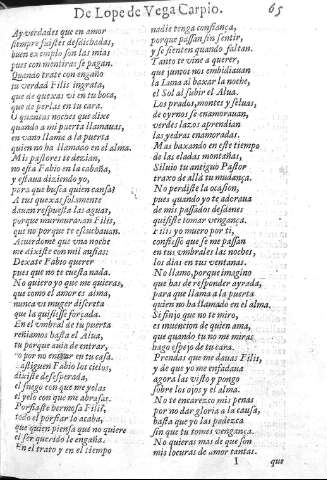 De Lope de Vega Carpio. 65
Ay verdades que en amor
siempre fuistes desdichadas,
buen exemplo son las mias
pues con mentiras se pagan.
Quando trate con engaño
tu verdad Filis ingrata,
que de quexas vi en tu boca,
que de perlas en tu cara.
O quantas noches que dixe
quando a mi puerta llamauas,
en vano llama a la puerta
quien no ha llamado en el alma.
Mis pastores te dezian,
no està Fabio en la cabaña,
y estaua diziendo yo,
para que busca quien cansa?
A tus quexas solamente
dauan respuesta las aguas,
porque murmurauan Filis,
que no porque te escuchauan.
Acuerdome que vna noche
me dixiste con mil ansias:
Dexate Fabio querer
pues que no te cuesta nada.
No quiero yo que me quieras,
que como el amor es alma,
nunca vi muger discreta
que la quisiesse forçada.
En el vmbral de tu puerta
reñiamos hasta el Alua,
tu porque auia de entrar,
yo por no entrar en tu casa.
Castiguen Fabio los cielos,
dixiste desesperada,
el fuego con que me yelas
el yelo con que me abrasas.
Porfiaste hermosa Filis,
todo el porfiar lo acaba,
que quien piensa que no quiere
el ser querido le engaña.
En el trato y en el tiempo
nadie tenga confiança,
porque passan sin sentir,
y se sienten quando faltan.
Tanto te vine a querer,
que juntos nos embidiauan
la Luna al baxar la noche,
el Sol al subir el Alua.
Los prados, montes y seluas,
de oyrnos se enamorauan,
verdes lazos aprendian
las yedras enamoradas.
Mas baxando en este tiempo
de las eladas montañas,
Siluio tu antiguo Pastor
traxo de allà tu mudança.
No perdiste la ocasion,
pues quando yo te adoraua
de mis passados desdenes
quisiste tomar vengança.
Filis yo muero por ti,
confiesso que se me passan
en tus vmbrales las noches,
los dias en tus ventanas.
No llamo, porque imagino
que has de responder ayrada,
para que llama a la puerta
quien no ha llamado en el alma.
Si finjo que no te miro,
es inuencion de quien ama,
que quando tu no me miras
hago espejo de tu cara.
Prendas que me dauas Filis,
y de que yo me enfadaua
agora las visto y pongo
sobre los ojos y el alma.
No te encarezco mis penas
por no dar gloria a la causa,
basta que yo las padezca
sin que tu tomes vengança.
No quieras mas de que son
mis locuras de amor tantas.
I que